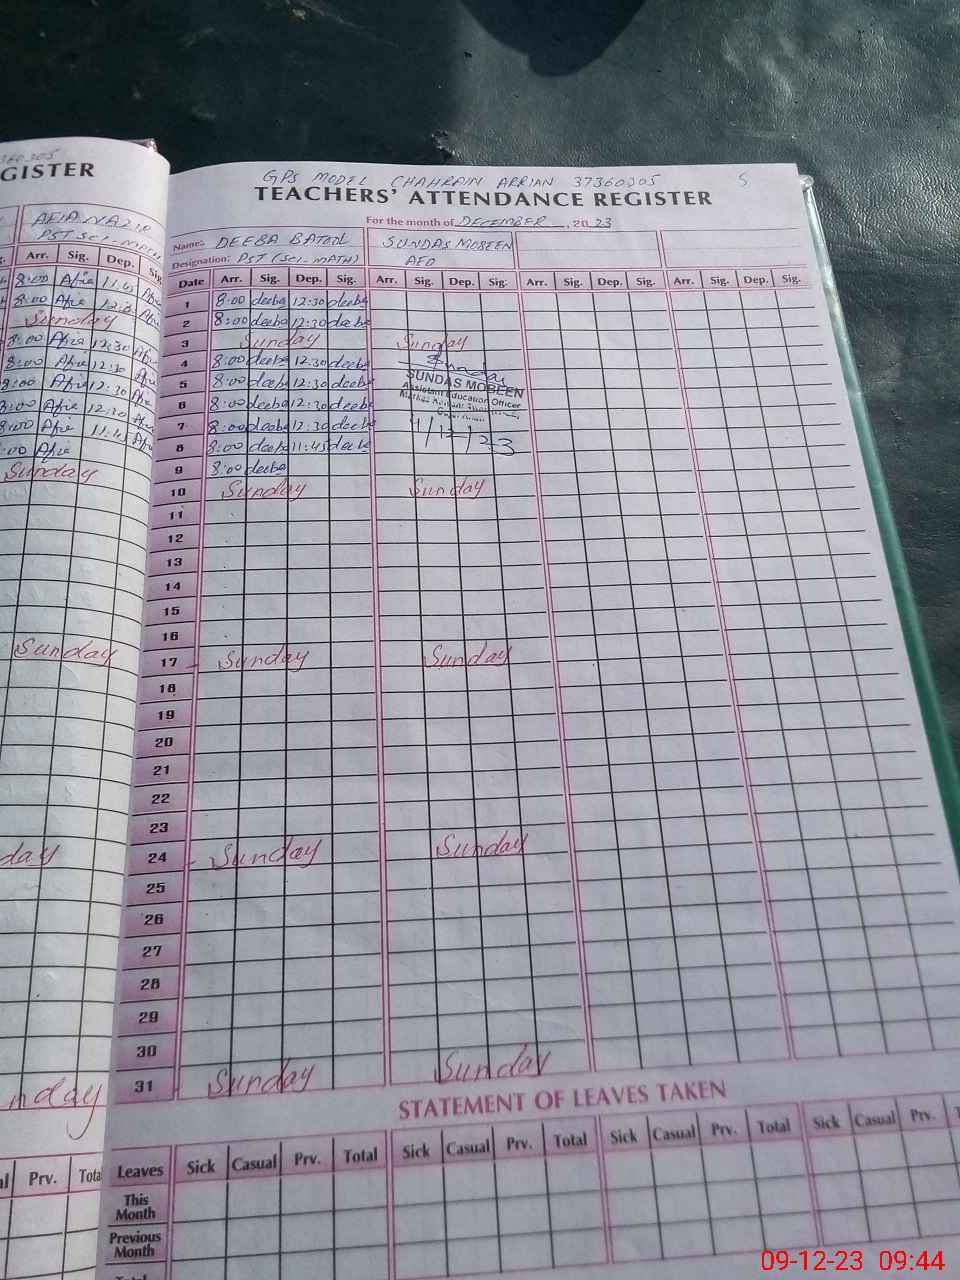 360205
GISTER
AFIA NAZIR
PST SCI-MATH
Arr. Sig. Dep. Sig.
8:00 Afia 11:45 Afia
8:00 Afia Afia
Sunday
8:00 Afia 12:30 Afia
8:00 Afia 12:30 Afia
8:00 Afia 12:30 Afia
8:00 Afia 12:30 Afia
8:00 Afia 11:45 Afia
:00 Afia
Sunday
Sunday
day
nday
al Prv. Tota
GPS MODEL CHAHRAIN ARRIAN 37360205 S
TEACHERS' ATTENDANCE REGISTER
For the month of DECEMBER, 20 23
Name: DEEBA BATOOL SUNDAS MOBEEN
Designation: PST (SCI-MATH) AEO
Date Arr. Sig. Dep. Sig. Arr. Sig. Dep. Sig. Arr. Sig. Dep. Sig. Arr. Sig. Dep. Sig.
1 8:00 deeba 12:30 deeba
2 8:00 deeba 12:30 deeba
3 Sunday Sunday
4 8:00 deeba 12:30 deeba Sundas
5 8:00 deeba 12:30 deeba SUNDAS MOBEEN
Assistant Education Officer
6 8:00 deeba 12:30 deeba
7 8:00 deeba 12:30 deeba 4/12/23
8 8:00 deeba 11:45 deeba
9 8:00 deeba
10 Sunday Sunday
11
12
13
14
15
16
17 Sunday Sunday
18
19
20
21
22
23
24 Sunday Sunday
25
26
27
28
29
30
31 Sunday Sunday
STATEMENT OF LEAVES TAKEN
Leaves Sick Casual Prv. Total Sick Casual Prv. Total Sick Casual Prv. Total Sick Casual Prv. T
This
Month
Previous
Month
Total
09-12-23 09:44